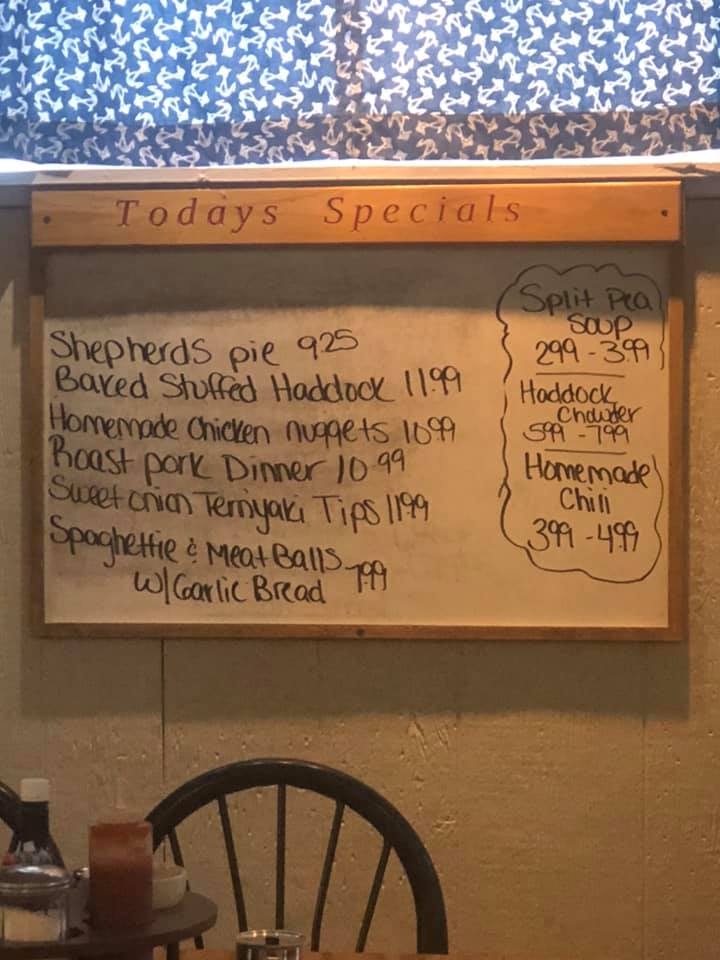 Todays Specials
Shepherds pie 925
Baked Stuffed Haddock 11.99
Homemade Chicken nuggets 1099
Roast pork Dinner 10 99
Sweet onion Terriyaki Tips 1199
Spaghettie & Meat Balls
W/Garlic Bread 7.99
Split Pea
Soup
299 - 399
Haddock
Chowder
599 - 799
Homemade
Chili
399 - 499